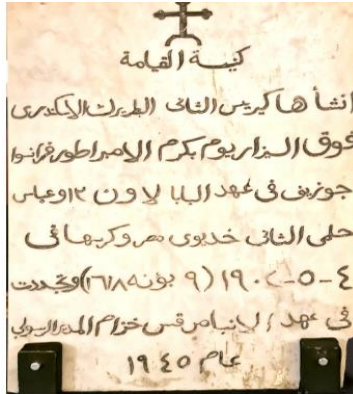 كنيسة القيامة
انشأها كيرلس الثانى البطريرك الاسكندرى
فوق السيزاريوم بكرم الامبراطور فرانسوا
جوزيف فى عهد البابا لاون ١٣ وعباس
حلمى الثانى خديوى مصر وكرسها فى
٤-٥-١٩٠٢ (٩ بؤنه ١٦١٨) وتجددت
فى عهد الانبا مرقس خزام المدبر الرسولى
عام ١٩٤٥